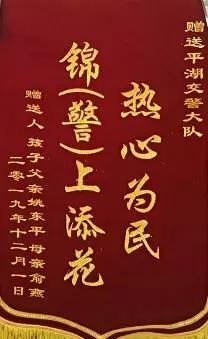 赠送平湖交警大队
热心为民
锦(警)上添花
赠送人 孩子父亲姚东平 母亲俞燕
二零一九年十二月一日